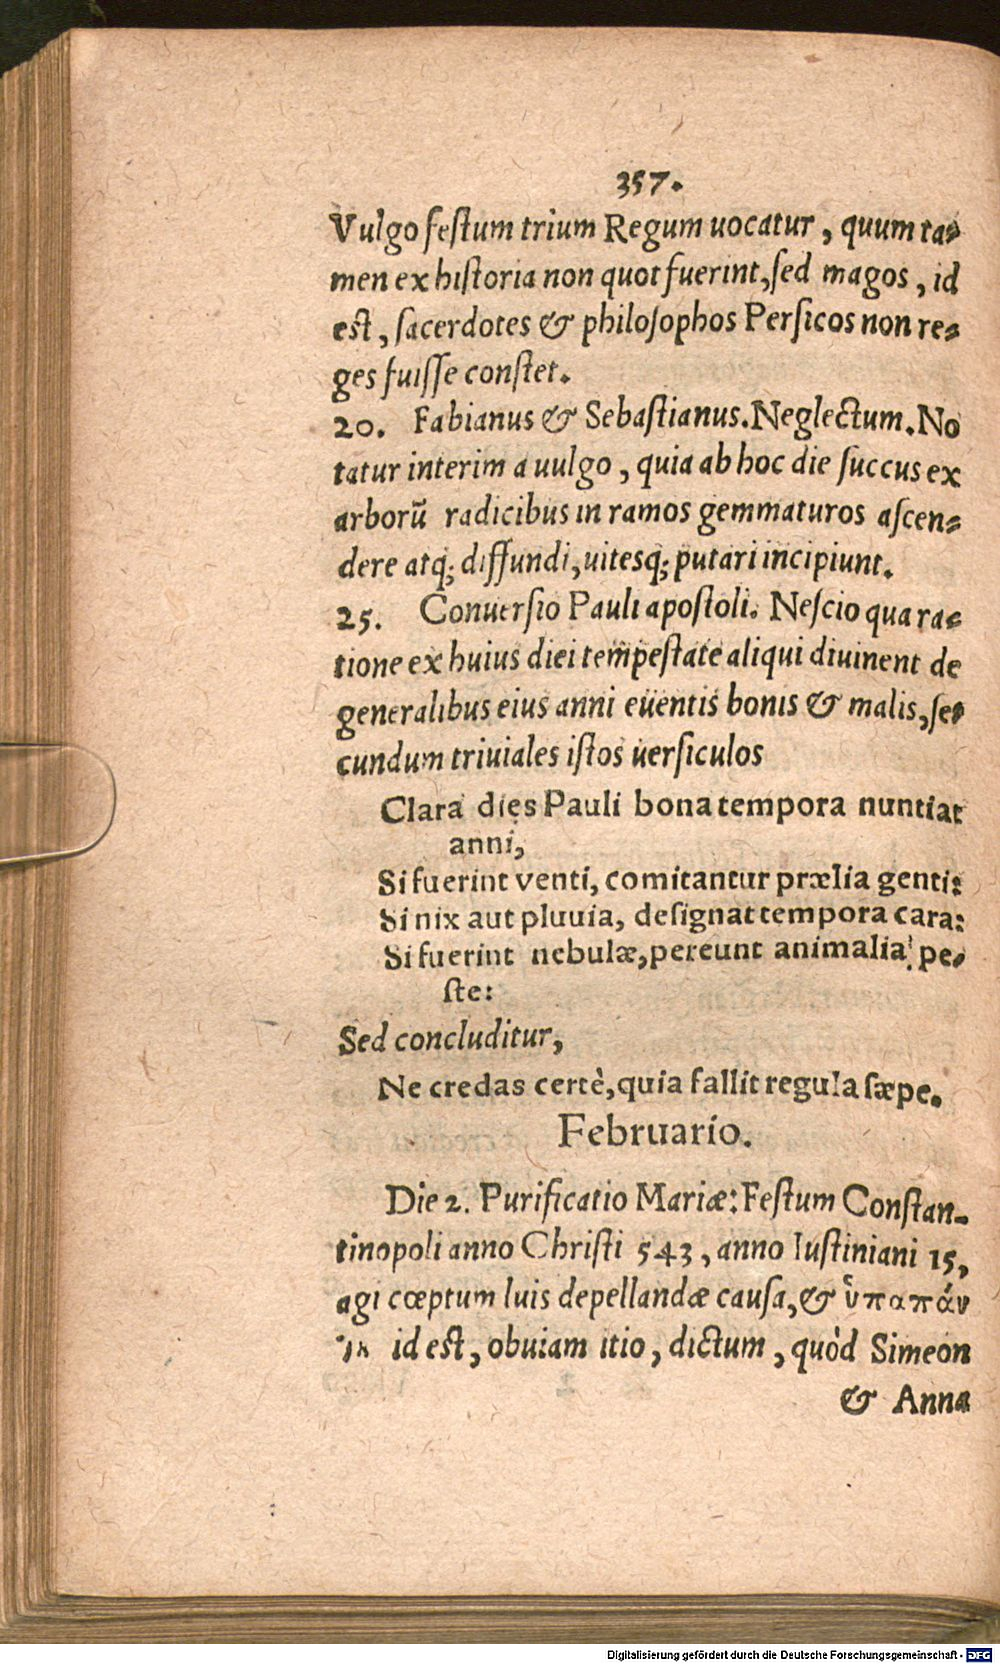 357.
Vulgo festum trium Regum uocatur, quum ta-
men ex historia non quot fuerint, sed magos, id
est, sacerdotes & philosophos Persicos non re-
ges fuisse constet.
20. Fabianus & Sebastianus. Neglectum. No
tatur interim a uulgo, quia ab hoc die succus ex
arborū radicibus in ramos gemmaturos ascen-
dere atq; diffundi, uitesq; putari incipiunt.
25. Conuersio Pauli apostoli. Nescio qua ra-
tione ex huius diei tempestate aliqui diuinent de
generalibus eius anni euentis bonis & malis, se-
cundum triuiales istos uersiculos
Clara dies Pauli bona tempora nuntiat
anni,
Si fuerint venti, comitantur prælia genti:
Si nix aut pluuia, designat tempora cara:
Si fuerint nebulæ, pereunt animalia pe-
ste:
Sed concluditur,
Ne credas certè, quia fallit regula sæpe.
Februario.
Die 2. Purificatio Mariæ: Festum Constan-
tinopoli anno Christi 543, anno Iustiniani 15,
agi cœptum luis depellandæ causa, & ὑπαπάν
id est, obuiam itio, dictum, quòd Simeon
& Anna
Digitalisierung gefördert durch die Deutsche Forschungsgemeinschaft - DFG